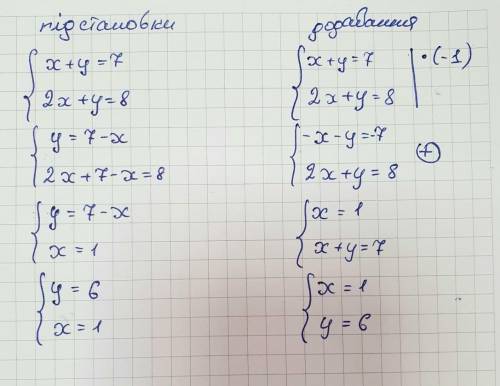 підстановки
x+y=7
2x+y=8
y=7-x
2x+7-x=8
y=7-x
x=1
y=6
x=1
додавання
x+y=7 | ·(-1)
2x+y=8
-x-y=-7
2x+y=8
+
x=1
x+y=7
x=1
y=6